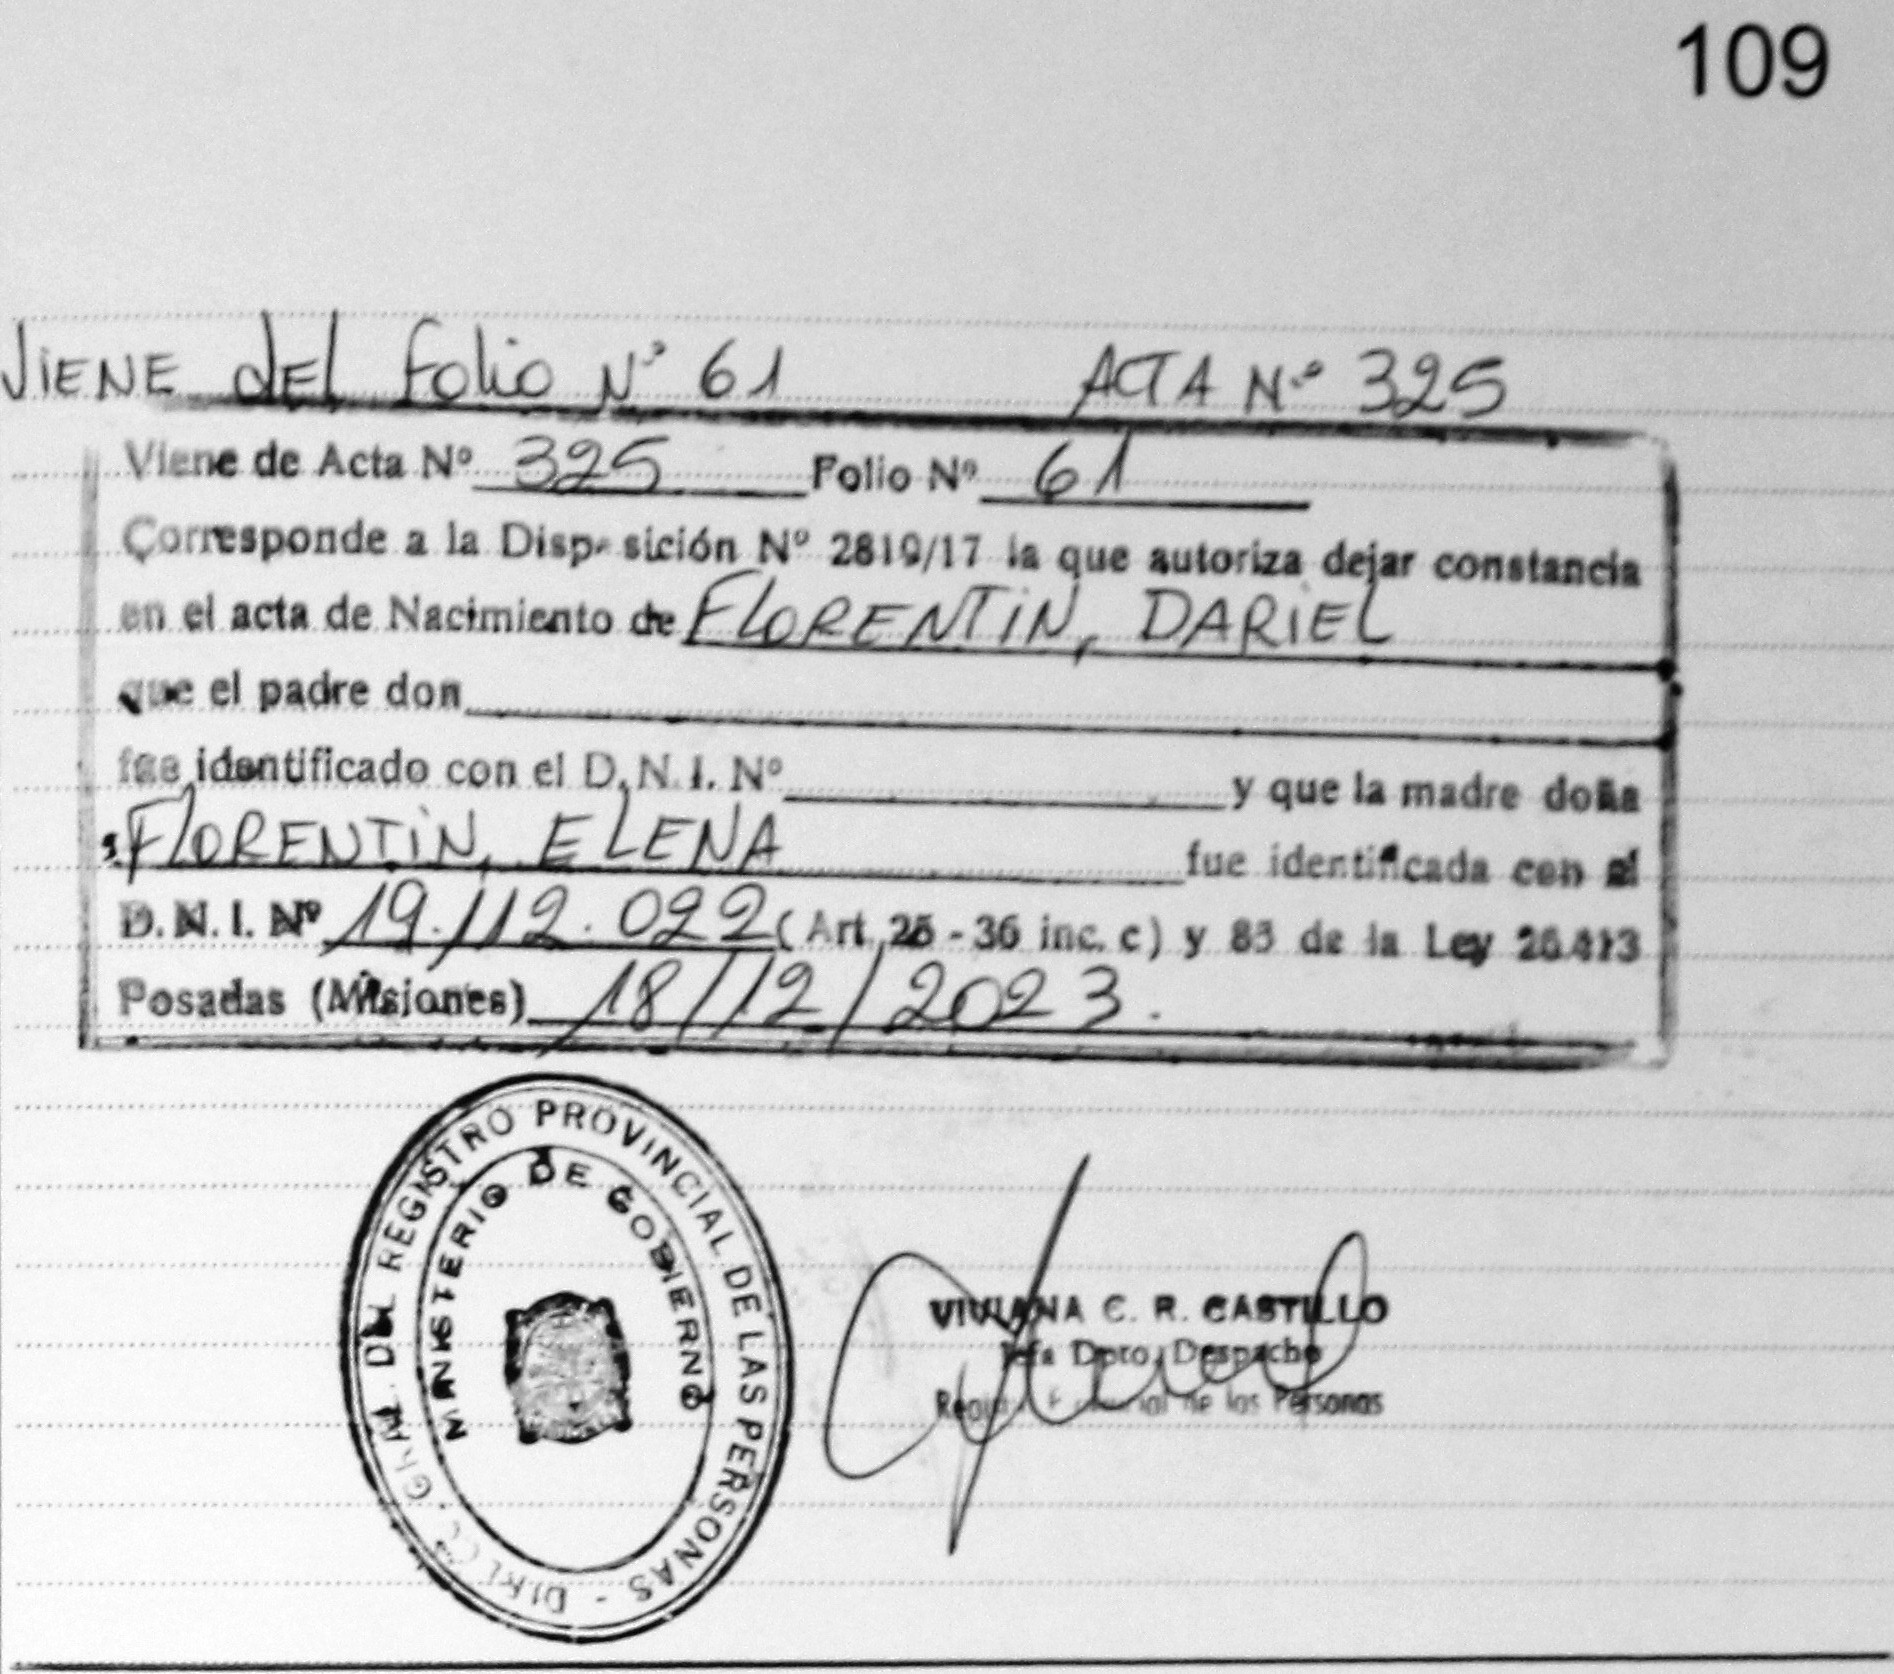 109
VIENE dEL Folio N° 61 ACTA N° 325
Viene de Acta Nº 325 Folio Nº 61
Corresponde a la Disposición Nº 2819/17 la que autoriza dejar constancia
en el acta de Nacimiento de FLORENTIN, DARIEL
que el padre don
fue identificado con el D.N.I. Nº y que la madre doña
FLORENTIN, ELENA fue identificada con el
D.N.I. Nº 19.112.022 (Art. 25 - 36 inc. c) y 85 de la Ley 26.413
Posadas (Misiones) 18/12/2023.
GRAL DEL REGISTRO PROVINCIAL DE LAS PERSONAS -
MINISTERIO DE GOBIERNO
VIVIANA C. R. CASTILLO
Jefa Dpto. Despacho
de las Personas